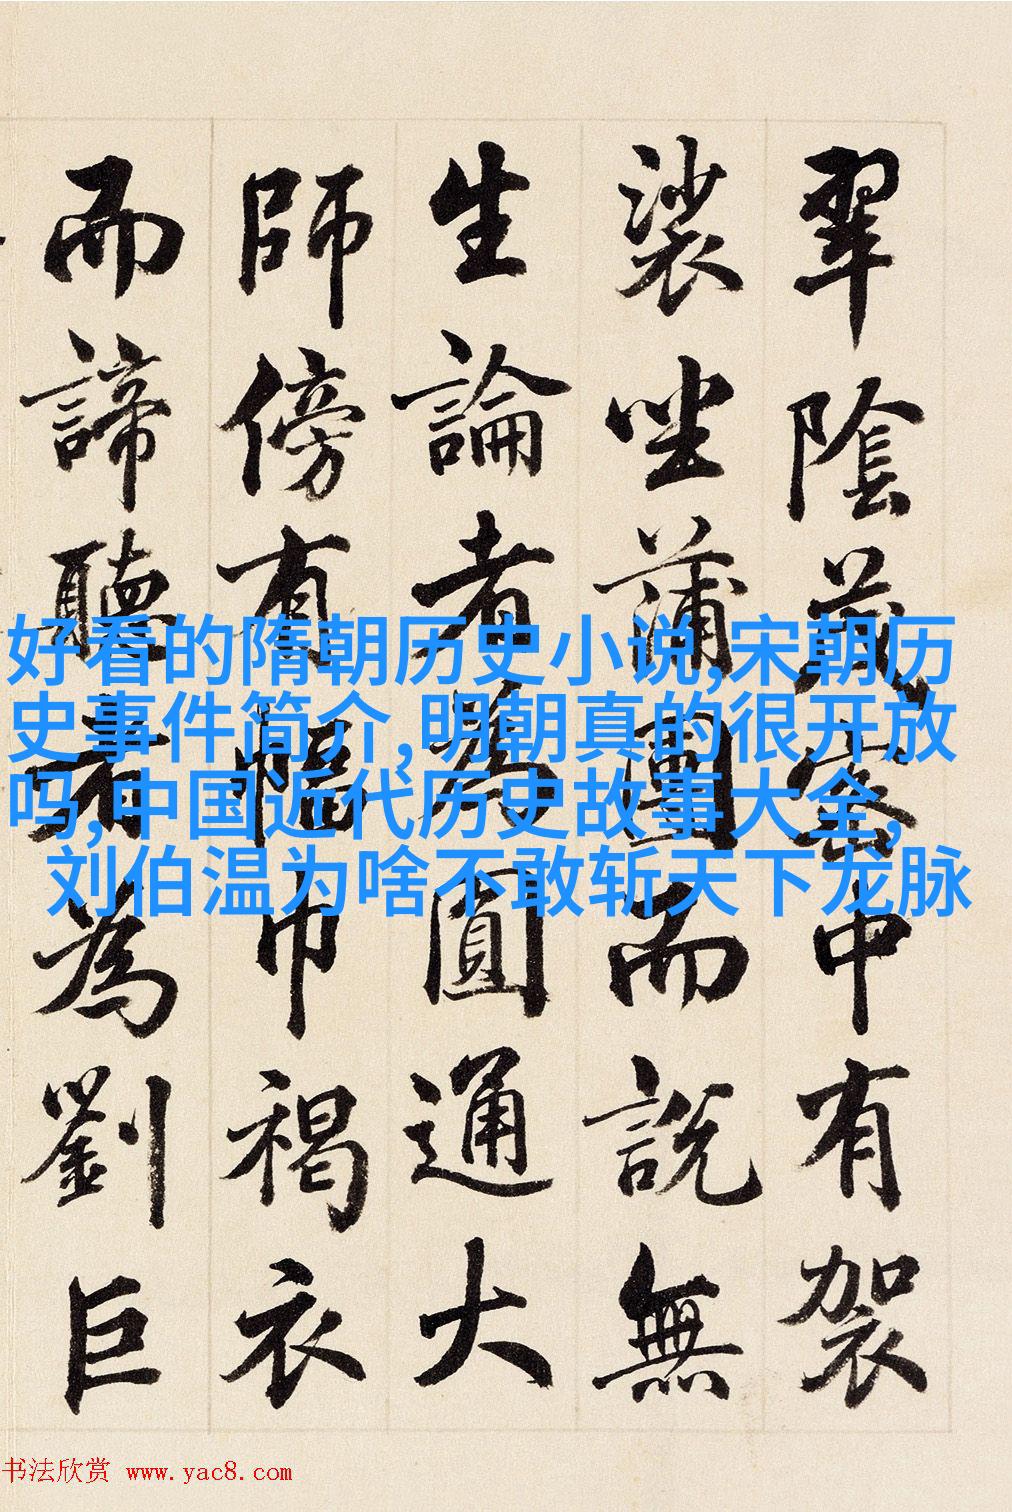 翠陰茂密中有袈
裟坐蒲團而說無
生論者為圓通大
師傍有幅巾褐衣
而諦聽者為劉巨
好看的隋朝历史小说,宋朝历
史事件简介,明朝真的很开放
吗,中国近代历史故事大全,
刘伯温为啥不敢斩天下龙脉
书法欣赏 www.yac8.com